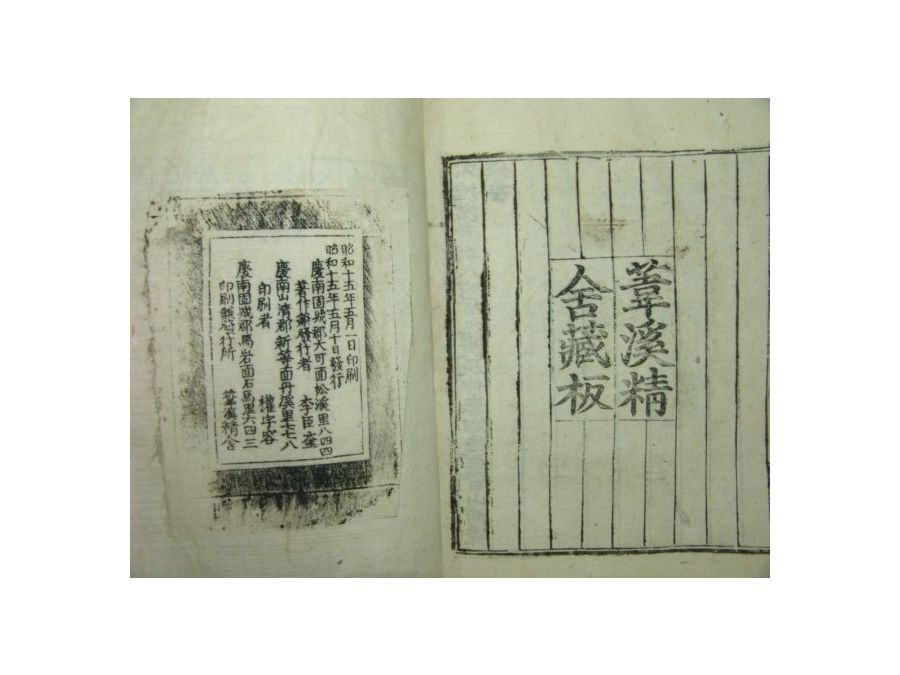 葦溪精
舍藏板
昭和十五年五月一日印刷
昭和十五年五月十日發行
慶南固城郡大可面松溪里八四四
著作兼發行者 李臣
慶南山淸郡新等面丹溪里七七八
印刷者 權字容
慶南固城郡馬岩面石馬里六四三
印刷兼發行所 葦溪精舍